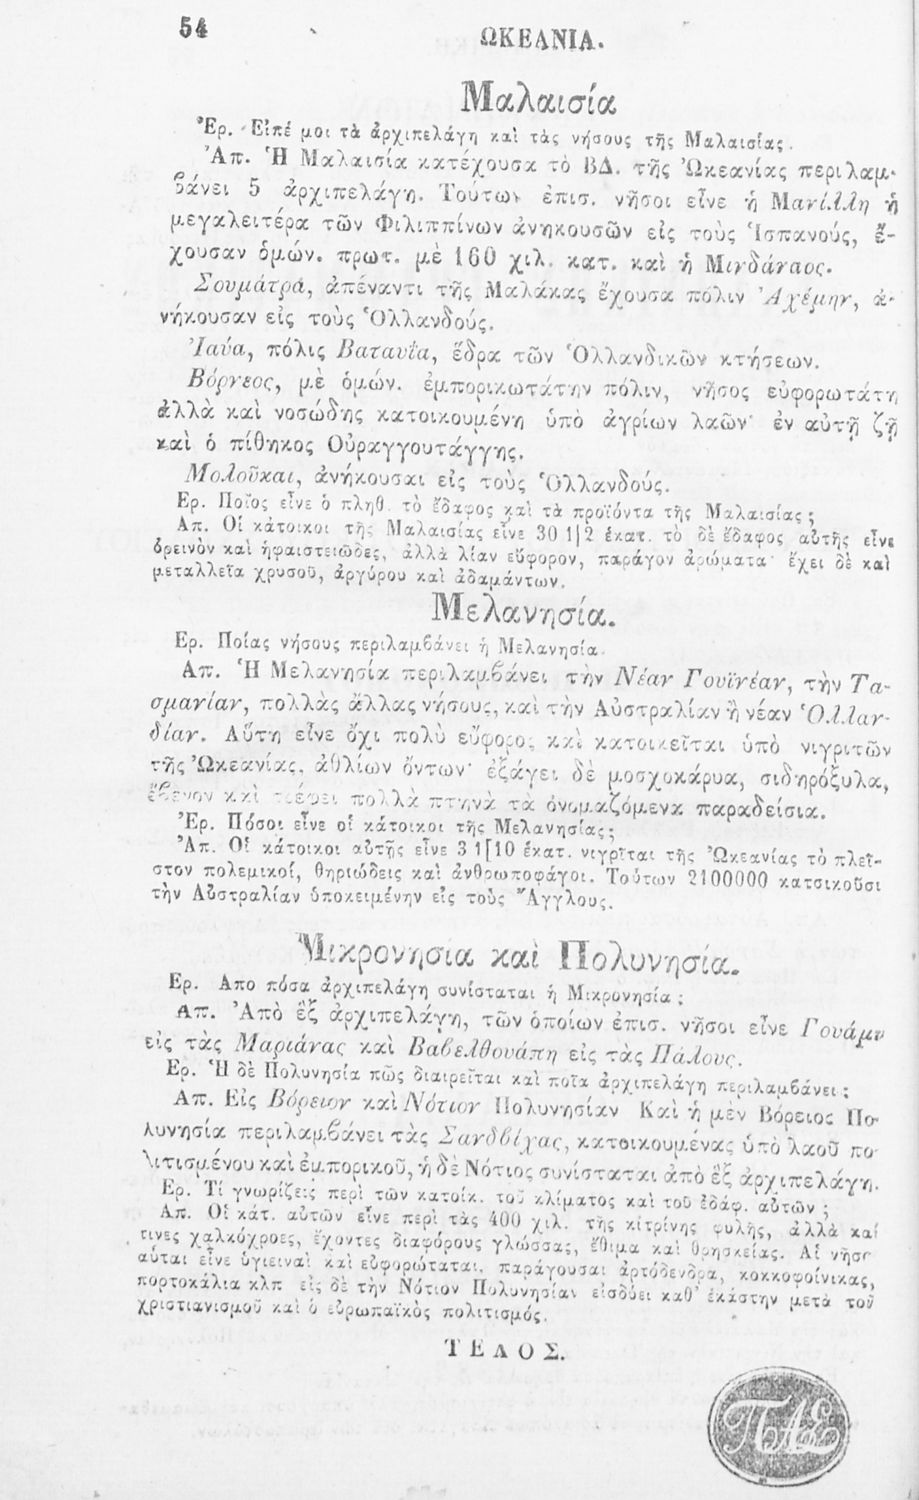 54
ΩΚΕΑΝΙΑ.
Μαλαισία
Ἐρ. Εἰπέ μοι τὰ ἀρχιπελάγη καὶ τὰς νήσους τῆς Μαλαισίας.
Ἀπ. Ἡ Μαλαισία κατέχουσα τὸ ΒΔ. τῆς Ὠκεανίας περιλαμ-
βάνει 5 ἀρχιπελάγη. Τούτων ἐπισ. νῆσοι εἶνε ἡ Μανίλλη ἡ
μεγαλειτέρα τῶν Φιλιππίνων ἀνηκουσῶν εἰς τοὺς Ἱσπανούς, ἔ-
χουσαν ὁμών. πρωτ. μὲ 160 χιλ. κατ. καὶ ἡ Μινδάναος.
Σουμάτρα, ἀπέναντι τῆς Μαλάκας ἔχουσα πόλιν Ἀχέμην, ἀ-
νήκουσαν εἰς τοὺς Ὁλλανδούς.
Ἰαύα, πόλις Βαταυΐα, ἕδρα τῶν Ὁλλανδικῶν κτήσεων.
Βόρνεος, μὲ ὁμών. ἐμπορικωτάτην πόλιν, νῆσος εὐφορωτάτη
ἀλλὰ καὶ νοσώδης κατοικουμένη ὑπὸ ἀγρίων λαῶν· ἐν αὐτῇ ζῇ
καὶ ὁ πίθηκος Οὐραγγουτάγγης.
Μολοῦκαι, ἀνήκουσαι εἰς τοὺς Ὁλλανδούς.
Ερ. Ποῖος εἶνε ὁ πληθ. τὸ ἔδαφος καὶ τὰ προϊόντα τῆς Μαλαισίας;
Απ. Οἱ κάτοικοι τῆς Μαλαισίας εἶνε 30 1|2 ἑκατ. τὸ δὲ ἔδαφος αὐτῆς εἶνε
ὀρεινὸν καὶ ἡφαιστειῶδες, ἀλλὰ λίαν εὔφορον, παράγον ἀρώματα· ἔχει δὲ καὶ
μεταλλεῖα χρυσοῦ, ἀργύρου καὶ ἀδαμάντων.
Μελανησία.
Ερ. Ποίας νήσους περιλαμβάνει ἡ Μελανησία.
Απ. Ἡ Μελανησία περιλαμβάνει τὴν Νέαν Γουϊνέαν, τὴν Τα-
σμανίαν, πολλὰς ἄλλας νήσους, καὶ τὴν Αὐστραλίαν ἢ νέαν Ὁλλαν-
δίαν. Αὕτη εἶνε ὄχι πολὺ εὔφορος καὶ κατοικεῖται ὑπὸ νιγριτῶν
τῆς Ὠκεανίας, ἀθλίων ὄντων· ἐξάγει δὲ μοσχοκάρυα, σιδηρόξυλα,
ἔβενον καὶ τρέφει πολλὰ πτηνὰ τὰ ὀνομαζόμενα παραδείσια.
Ἐρ. Πόσοι εἶνε οἱ κάτοικοι τῆς Μελανησίας;
Ἀπ. Οἱ κάτοικοι αὐτῆς εἶνε 3 1[10 ἑκατ. νιγρῖται τῆς Ὠκεανίας τὸ πλεῖ-
στον πολεμικοί, θηριώδεις καὶ ἀνθρωποφάγοι. Τούτων 2100000 κατοικοῦσι
τὴν Αὐστραλίαν ὑποκειμένην εἰς τοὺς Ἄγγλους.
Μικρονησία καὶ Πολυνησία.
Ερ. Απο πόσα ἀρχιπελάγη συνίσταται ἡ Μικρονησία;
Απ. Ἀπὸ ἓξ ἀρχιπελάγη, τῶν ὁποίων ἐπισ. νῆσοι εἶνε Γουάμν
εἰς τὰς Μαριάνας καὶ Βαβελθουάπη εἰς τὰς Πάλους.
Ερ. Ἡ δὲ Πολυνησία πῶς διαιρεῖται καὶ ποῖα ἀρχιπελάγη περιλαμβάνει;
Απ. Εἰς Βόρειον καὶ Νότιον Πολυνησίαν Καὶ ἡ μὲν Βόρειος Πο-
λυνησία περιλαμβάνει τὰς Σανδβίχας, κατοικουμένας ὑπὸ λαοῦ πο-
λιτισμένου καὶ ἐμπορικοῦ, ἡ δὲ Νότιος συνίσταται ἀπὸ ἓξ ἀρχιπελάγη.
Ερ. Τί γνωρίζεις περὶ τῶν κατοίκ. τοῦ κλίματος καὶ τοῦ ἐδάφ. αὐτῶν;
Απ. Οἱ κάτ. αὐτῶν εἶνε περὶ τὰς 400 χιλ. τῆς κιτρίνης φυλῆς, ἀλλὰ καί
τινες χαλκόχροες, ἔχοντες διαφόρους γλώσσας, ἔθιμα καὶ θρησκείας. Αἱ νῆσο
αὗται εἶνε ὑγιειναὶ καὶ εὐφορώταται, παράγουσαι ἀρτόδενδρα, κοκκοφοίνικας,
πορτοκάλια κλπ εἰς δὲ τὴν Νότιον Πολυνησίαν εἰσδύει καθ' ἑκάστην μετὰ τοῦ
χριστιανισμοῦ καὶ ὁ εὐρωπαϊκὸς πολιτισμός.
ΤΕΛΟΣ.
ΠΑΣ